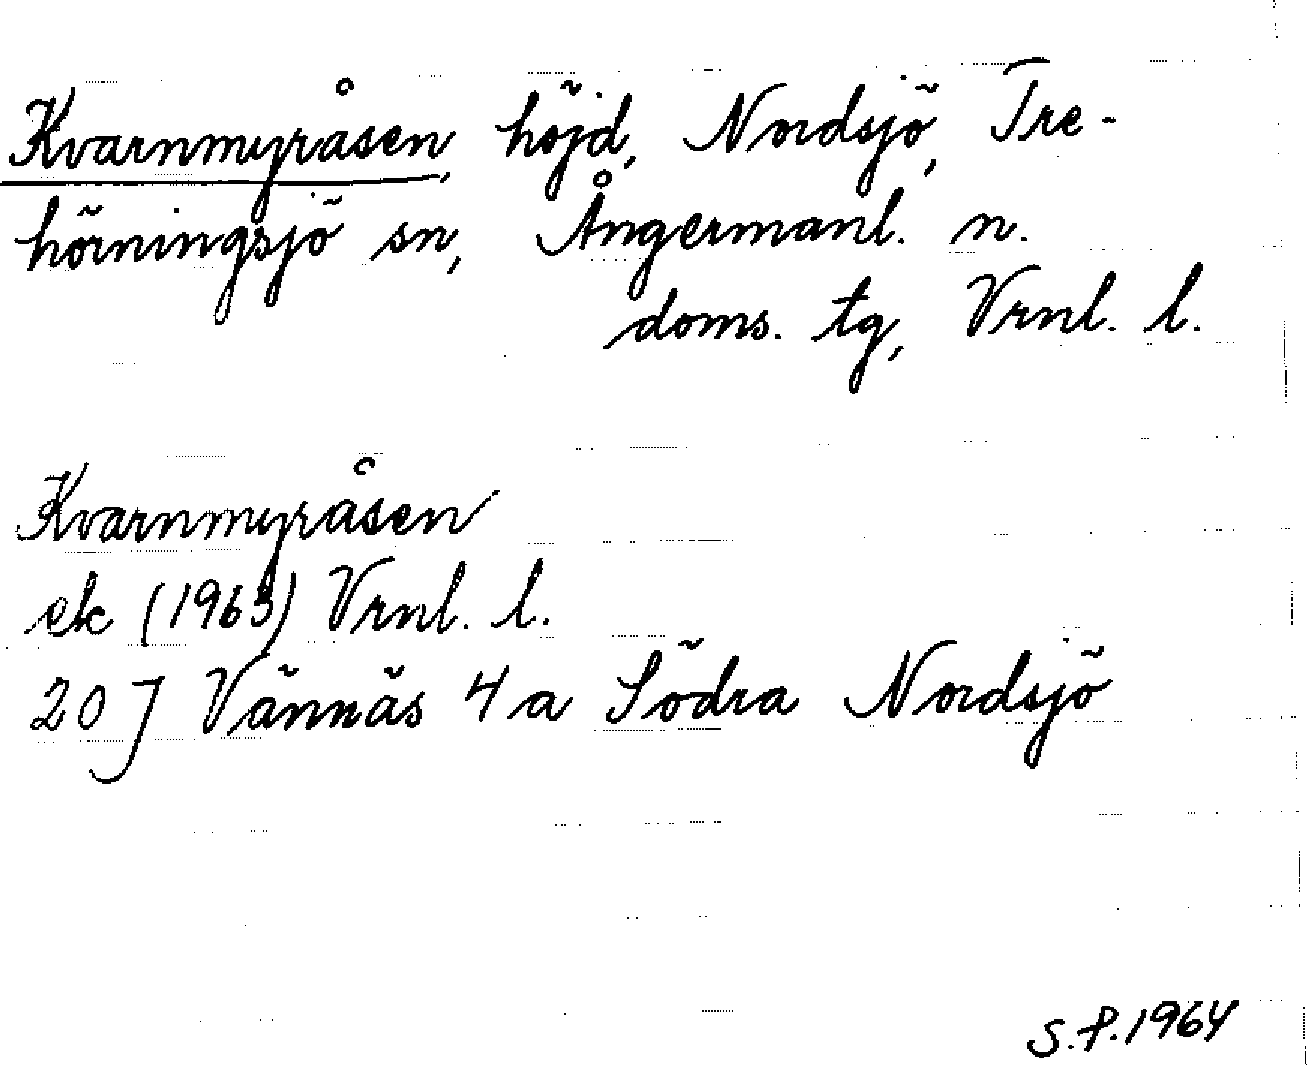 Kvarnmyråsen, höjd, Nordsjö, Tre-
hörningsjö sn, Ångermanl. n.
doms. tg, Vrnl. l.
Kvarnmyråsen
ek (1963) Vrnl. l.
20 J Vännäs 4 a Södra Nordsjö
S.P. 1964